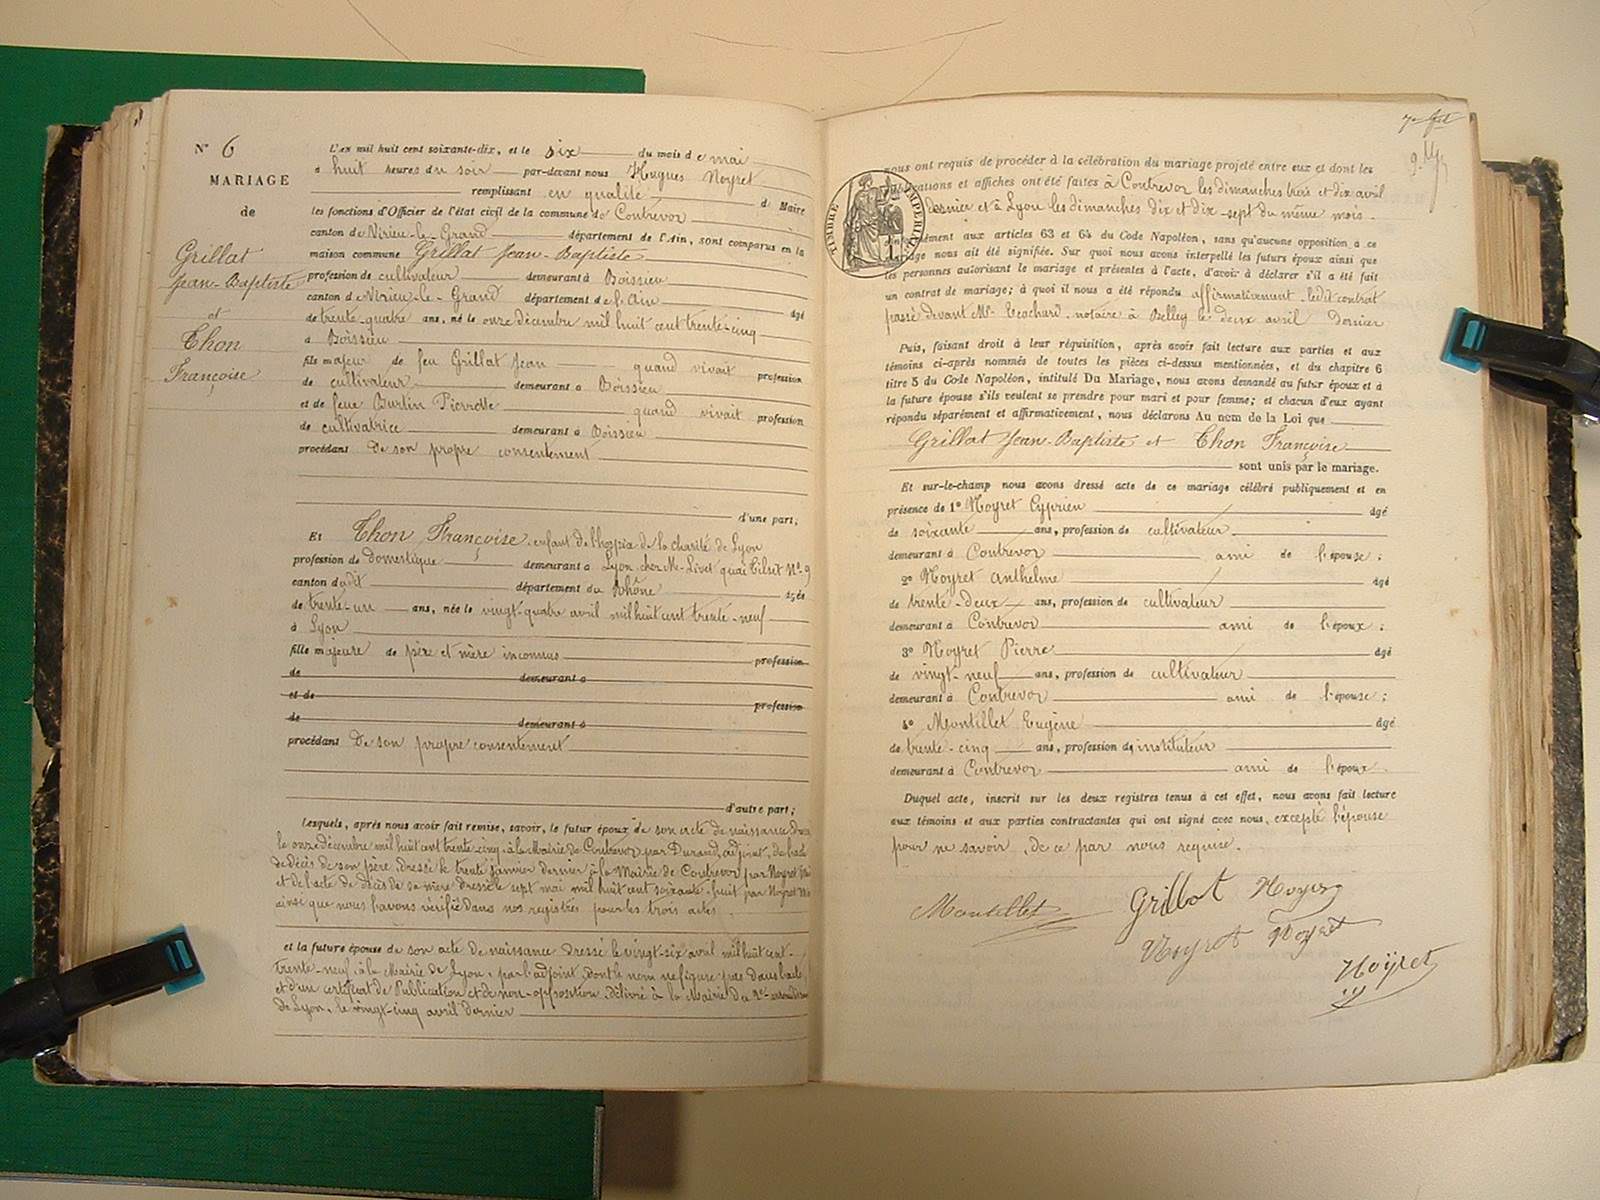 N° 6
MARIAGE
de
Grillat
Jean-Baptiste
et
Thon
Françoise
L'an mil huit cent soixante-dix, et le six du mois de mai
à huit heures du soir par-devant nous Hugues Noyret
remplissant en qualité de Maire
les fonctions d'Officier de l'état civil de la commune de Contrevoz
canton de Virieu-le-Grand département de l'Ain, sont comparus en la
maison commune Grillat Jean-Baptiste
profession de cultivateur demeurant à Boissieu
canton de Virieu-le-Grand département de l'Ain âgé
de trente-quatre ans, né le onze décembre mil huit cent trente-cinq
à Boissieu
fils majeur de feu Grillat Jean quand vivait profession
de cultivateur demeurant à Boissieu
et de feue Burtin Pierrette quand vivait profession
de cultivatrice demeurant à Boissieu
procédant de son propre consentement
d'une part;
Et Thon Françoise, enfant de l'hospice de la charité de Lyon
profession de domestique demeurant à Lyon chez Mr Livet quai Tilsit N° 9
canton dudit département du Rhône âgée
de trente-un ans, née le vingt-quatre avril mil huit cent trente-neuf
à Lyon
fille majeure de père et mère inconnus profession
de demeurant à
et de profession
de demeurant à
procédant de son propre consentement
d'autre part;
Lesquels, après nous avoir fait remise, savoir, le futur époux de son acte de naissance dressé
le onze décembre mil huit cent trente-cinq à la Mairie de Contrevoz par Durand, adjoint, de l'acte
de décès de son père, dressé le trente janvier dernier à la Mairie de Contrevoz par Noyret
et de l'acte de décès de sa mère dressé le sept mai mil huit cent soixante-huit par Noyret
ainsi que nous l'avons vérifié dans nos registres pour les trois actes.
et la future épouse de son acte de naissance dressé le vingt-six avril mil huit cent
trente-neuf à la Mairie de Lyon, par l'adjoint dont le nom ne figure pas dans l'acte
et d'un certificat de Publication et de non-opposition délivré à la Mairie du 2e arrondissement
de Lyon, le vingt-cinq avril dernier
nous ont requis de procéder à la célébration du mariage projeté entre eux et dont les
publications et affiches ont été faites à Contrevoz les dimanches trois et dix avril
dernier et à Lyon les dimanches dix et dix-sept du même mois.
TIMBRE IMPERIAL
aux articles 63 et 64 du Code Napoléon, sans qu'aucune opposition à ce
nous ait été signifiée. Sur quoi nous avons interpellé les futurs époux ainsi que
les personnes autorisant le mariage et présentes à l'acte, d'avoir à déclarer s'il a été fait
un contrat de mariage; à quoi il nous a été répondu affirmativement. ledit contrat
passé devant Me notaire à Belley le deux avril dernier
Puis, faisant droit à leur réquisition, après avoir fait lecture aux parties et aux
témoins ci-après nommés de toutes les pièces ci-dessus mentionnées, et du chapitre 6
titre 5 du Code Napoléon, intitulé Du Mariage, nous avons demandé au futur époux et à
la future épouse s'ils veulent se prendre pour mari et pour femme; et chacun d'eux ayant
répondu séparément et affirmativement, nous déclarons Au nom de la Loi que
Grillat Jean-Baptiste et Thon Françoise
sont unis par le mariage.
Et sur-le-champ nous avons dressé acte de ce mariage célébré publiquement et en
présence de 1° Noyret Cyprien âgé
de soixante ans, profession de cultivateur
demeurant à Contrevoz ami de l'épouse;
2° Noyret Anthelme âgé
de trente-deux ans, profession de cultivateur
demeurant à Contrevoz ami de l'époux;
3° Noyret Pierre âgé
de vingt-neuf ans, profession de cultivateur
demeurant à Contrevoz ami de l'épouse;
4° Montillet Eugène âgé
de trente-cinq ans, profession de instituteur
demeurant à Contrevoz ami de l'époux
Duquel acte, inscrit sur les deux registres tenus à cet effet, nous avons fait lecture
aux témoins et aux parties contractantes qui ont signé avec nous, excepté l'épouse
pour ne savoir, de ce par nous requise.
Montillet Grillat Noyret
Noyret Noyret
Noyret